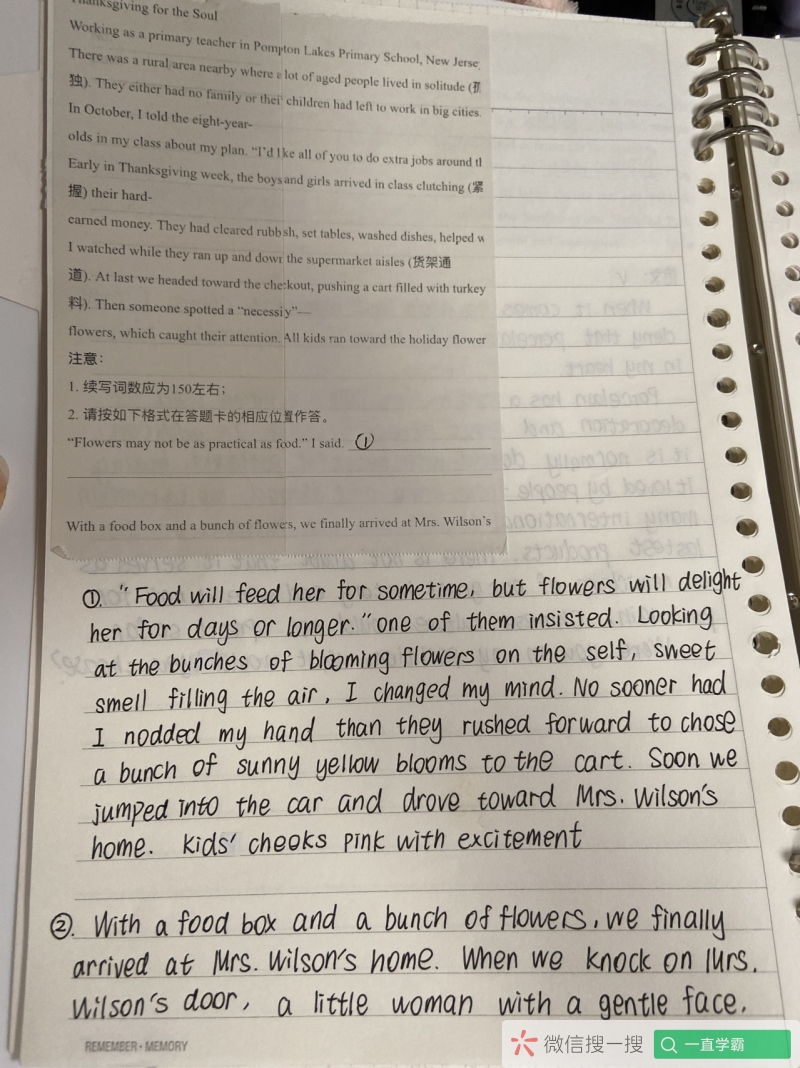 Thanksgiving for the Soul
Working as a primary teacher in Pompton Lakes Primary School, New Jerse
There was a rural area nearby where a lot of aged people lived in solitude (孤
独). They either had no family or their children had left to work in big cities.
In October, I told the eight-year-
olds in my class about my plan. “I'd like all of you to do extra jobs around tl
Early in Thanksgiving week, the boys and girls arrived in class clutching (紧
握) their hard-
earned money. They had cleared rubbish, set tables, washed dishes, helped w
I watched while they ran up and down the supermarket aisles (货架通
道). At last we headed toward the checkout, pushing a cart filled with turkey
料). Then someone spotted a “necessity”—
flowers, which caught their attention. All kids ran toward the holiday flower
注意：
1. 续写词数应为150左右；
2. 请按如下格式在答题卡的相应位置作答。
“Flowers may not be as practical as food.” I said. ①
With a food box and a bunch of flowers, we finally arrived at Mrs. Wilson's
①. “Food will feed her for sometime, but flowers will delight
her for days or longer.” one of them insisted. Looking
at the bunches of blooming flowers on the self, sweet
smell filling the air, I changed my mind. No sooner had
I nodded my hand than they rushed forward to chose
a bunch of sunny yellow blooms to the cart. Soon we
jumped into the car and drove toward Mrs. Wilson's
home. Kids' cheeks pink with excitement
②. With a food box and a bunch of flowers, we finally
arrived at Mrs. Wilson's home. When we knock on Mrs.
Wilson's door, a little woman with a gentle face,
REMEMBER · MEMORY
微信搜一搜
一直学霸